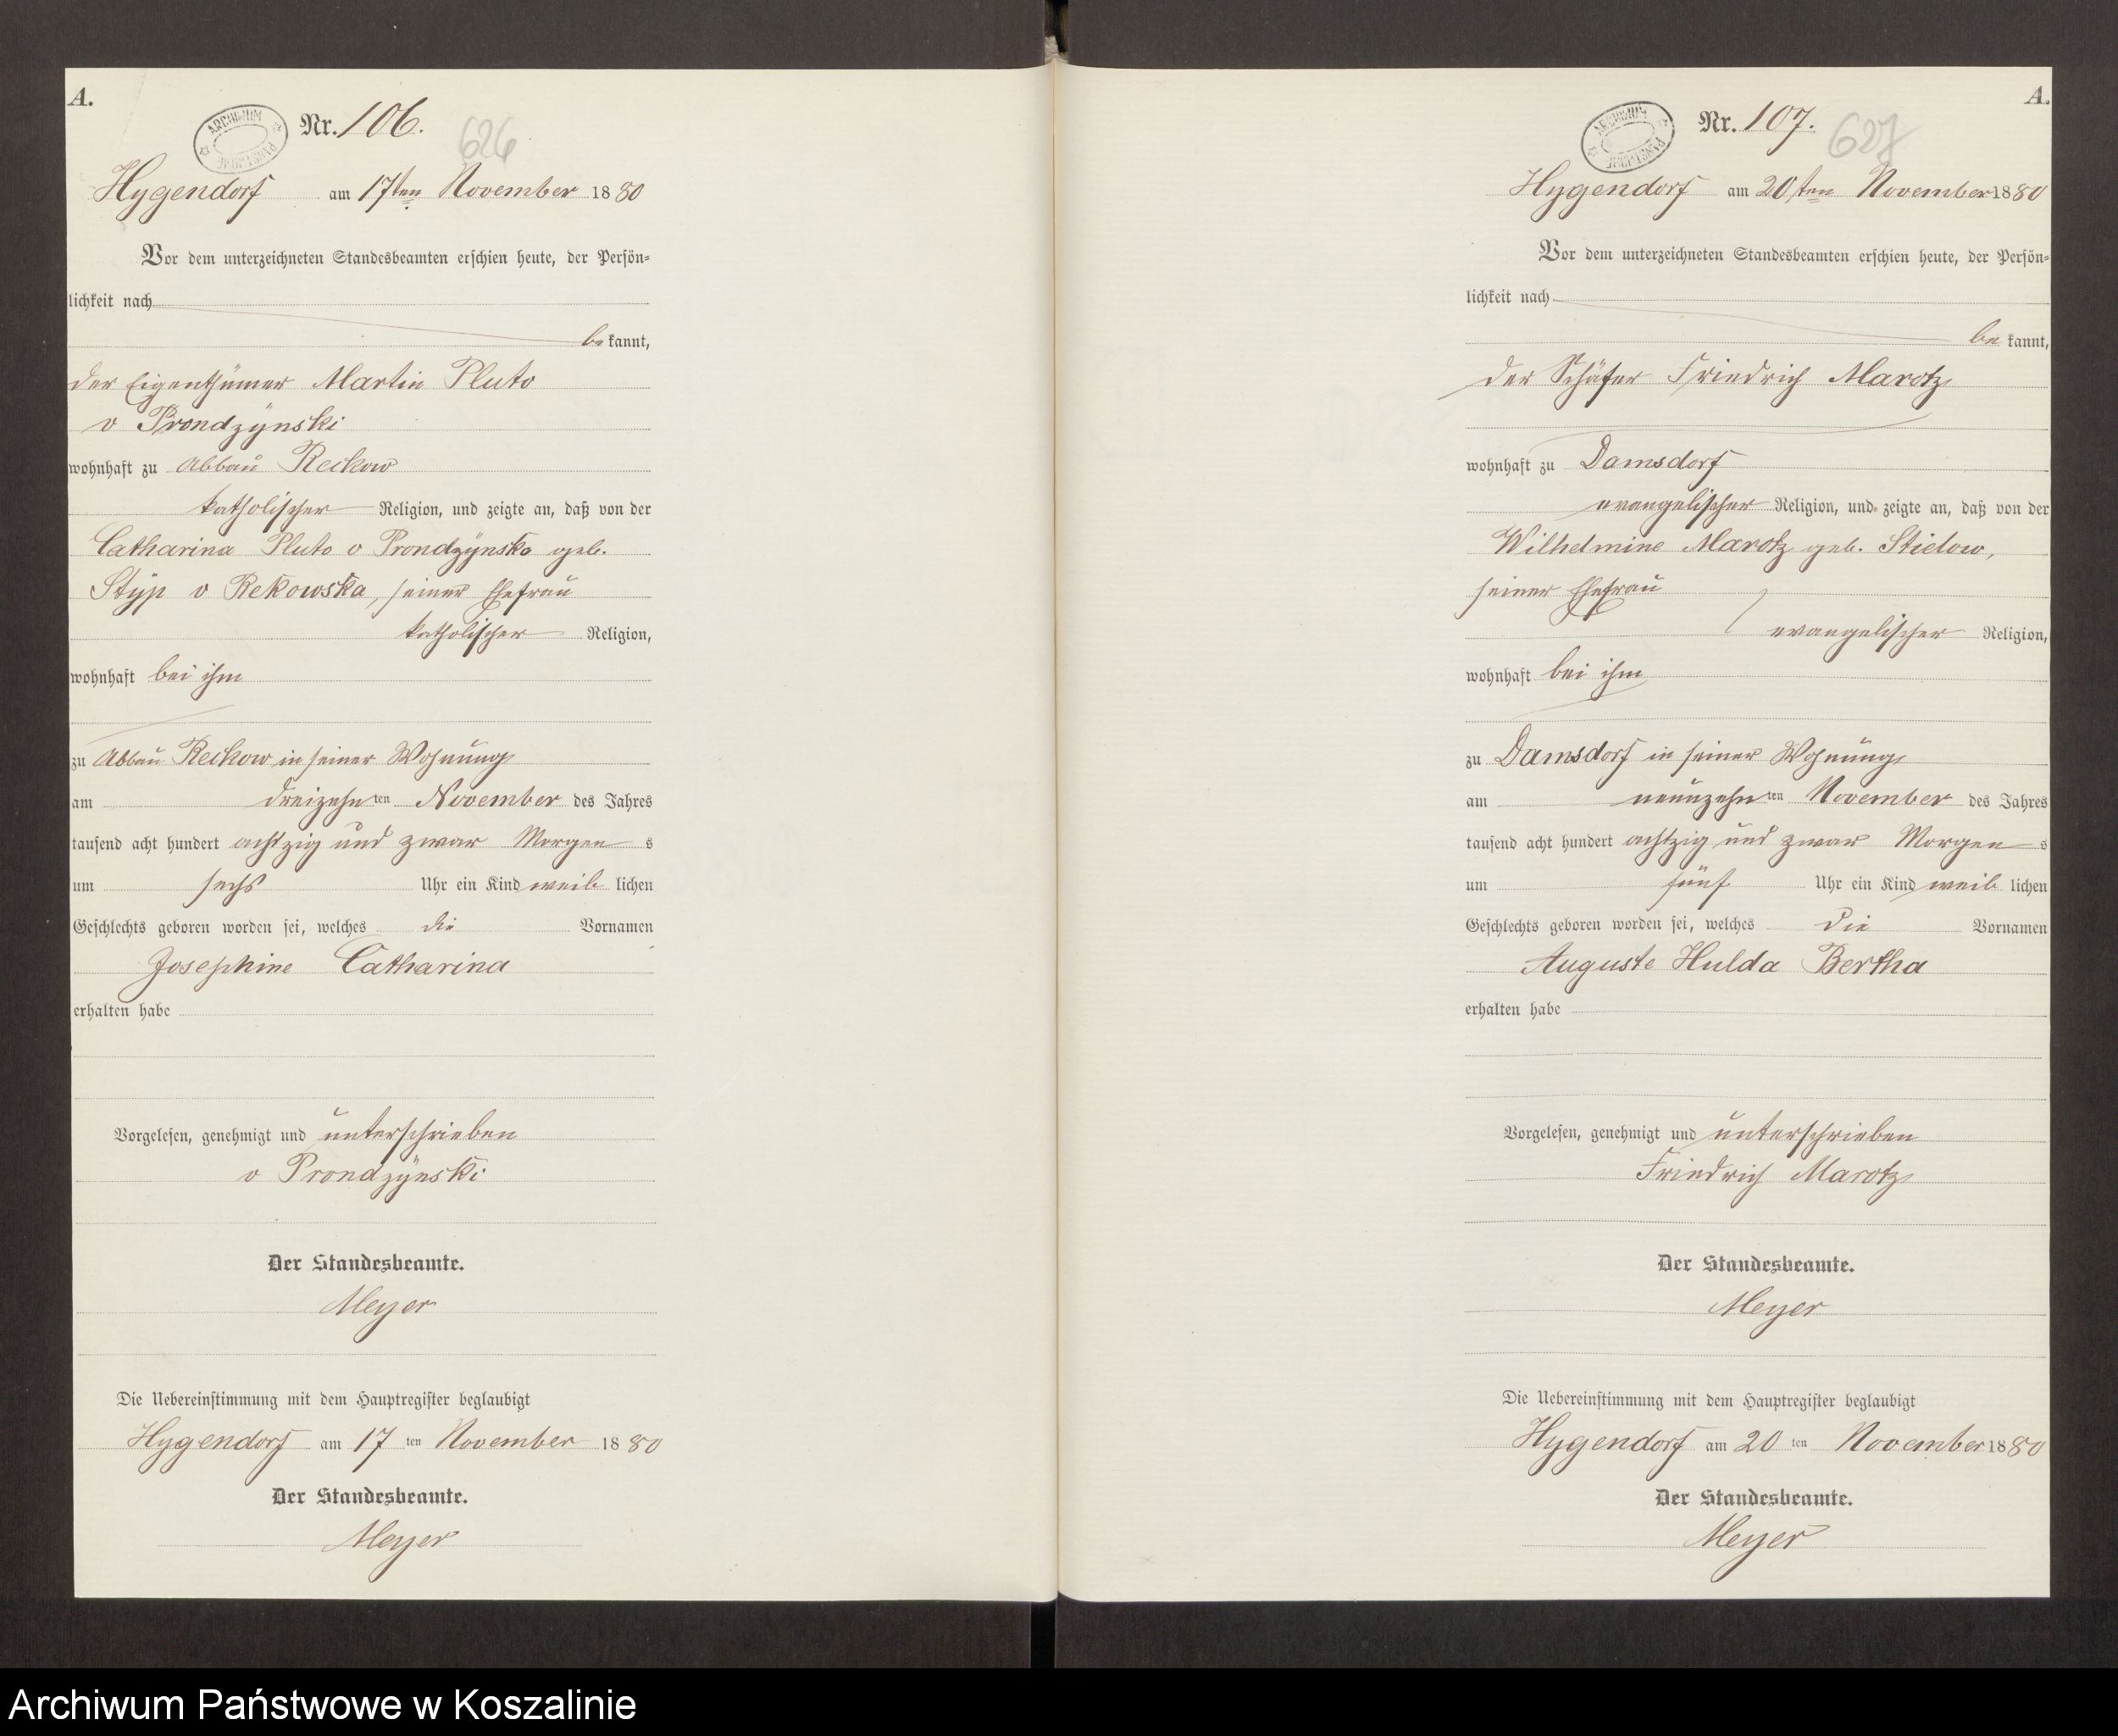 A.
ARCHIWUM PAŃSTWOWE
Nr. 106.
626
Hygendorf am 17ten November 1880
Vor dem unterzeichneten Standesbeamten erschien heute, der Persön-
lichkeit nach
bekannt,
der Eigenthümer Martin Pluto
v Prondzynski
wohnhaft zu Abbau Reckow
katholischer Religion, und zeigte an, daß von der
Catharina Pluto v Prondzynska geb.
Styp v Rekowska, seiner Ehefrau
katholischer Religion,
wohnhaft bei ihm
zu Abbau Reckow in seiner Wohnung
am dreizehnten November des Jahres
tausend acht hundert achtzig und zwar Morgens
um sechs Uhr ein Kind weiblichen
Geschlechts geboren worden sei, welches die Vornamen
Josephine Catharina
erhalten habe
Vorgelesen, genehmigt und unterschrieben
v Prondzynski
Der Standesbeamte.
Meyer
Die Uebereinstimmung mit dem Hauptregister beglaubigt
Hygendorf am 17ten November 1880
Der Standesbeamte.
Meyer
A.
ARCHIWUM PAŃSTWOWE
Nr. 107.
627
Hygendorf am 20ten November 1880
Vor dem unterzeichneten Standesbeamten erschien heute, der Persön-
lichkeit nach
bekannt,
der Schäfer Friedrich Marotz
wohnhaft zu Damsdorf
evangelischer Religion, und zeigte an, daß von der
Wilhelmine Marotz geb. Stielow,
seiner Ehefrau
evangelischer Religion,
wohnhaft bei ihm
zu Damsdorf in seiner Wohnung
am neunzehnten November des Jahres
tausend acht hundert achtzig und zwar Morgens
um fünf Uhr ein Kind weiblichen
Geschlechts geboren worden sei, welches die Vornamen
Auguste Hulda Bertha
erhalten habe
Vorgelesen, genehmigt und unterschrieben
Friedrich Marotz
Der Standesbeamte.
Meyer
Die Uebereinstimmung mit dem Hauptregister beglaubigt
Hygendorf am 20ten November 1880
Der Standesbeamte.
Meyer
Archiwum Państwowe w Koszalinie